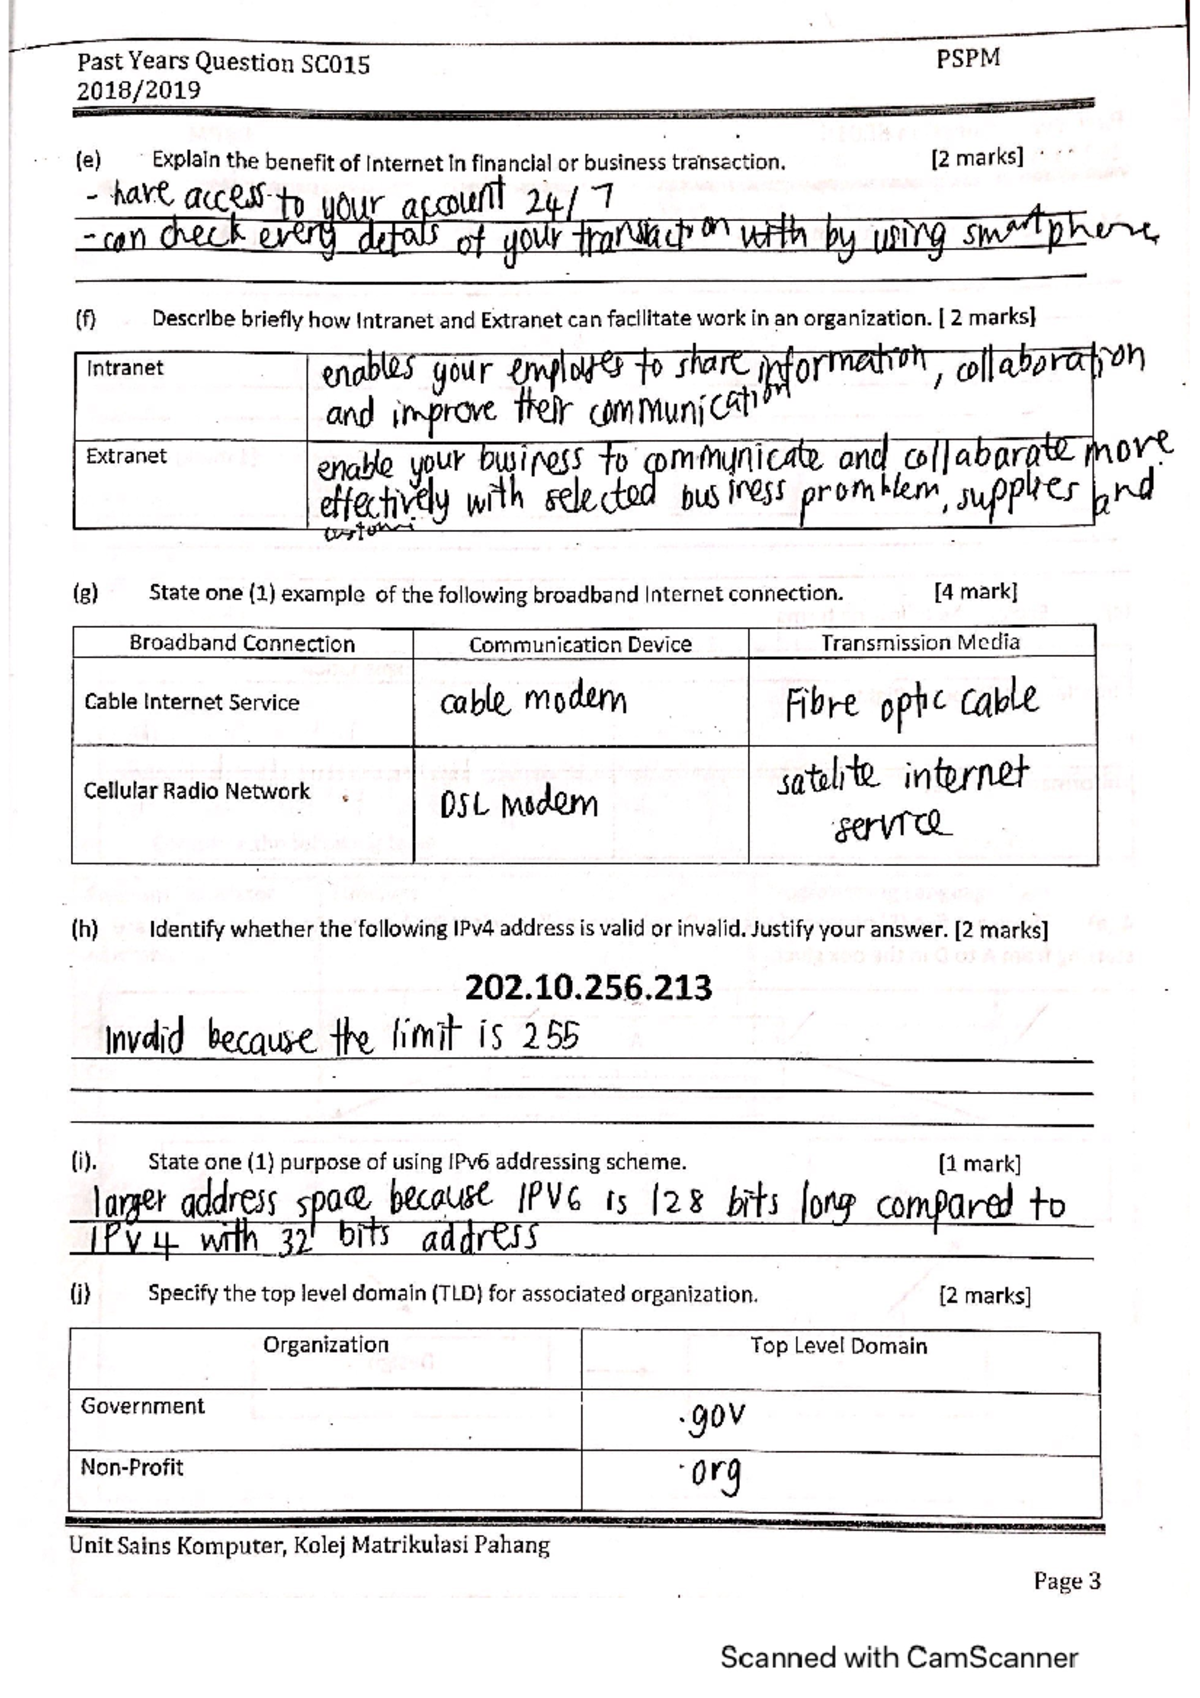 Past Years Question SC015 PSPM
2018/2019
(e) Explain the benefit of Internet in financial or business transaction. [2 marks]
- have access to your account 24/7
- can check every details of your transaction with by using smartphone
(f) Describe briefly how Intranet and Extranet can facilitate work in an organization. [ 2 marks]
Intranet enables your employes to share information, collaboration
and improve their communication
Extranet enable your business to communicate and collabarate more
effectively with selected business promblem, supplies and
(g) State one (1) example of the following broadband Internet connection. [4 mark]
Broadband Connection Communication Device Transmission Media
Cable Internet Service cable modem Fibre optic cable
Cellular Radio Network DSL modem satelite internet
service
(h) Identify whether the following IPv4 address is valid or invalid. Justify your answer. [2 marks]
202.10.256.213
Invalid because the limit is 255
(i). State one (1) purpose of using IPv6 addressing scheme. [1 mark]
larger address space because IPV6 is 128 bits long compared to
IPV4 with 32 bits address
(j) Specify the top level domain (TLD) for associated organization. [2 marks]
Organization Top Level Domain
Government .gov
Non-Profit .org
Unit Sains Komputer, Kolej Matrikulasi Pahang
Page 3
Scanned with CamScanner